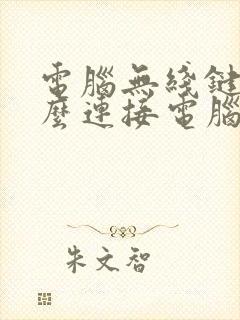 電腦無綫鍵
麽連接電腦
朱文智